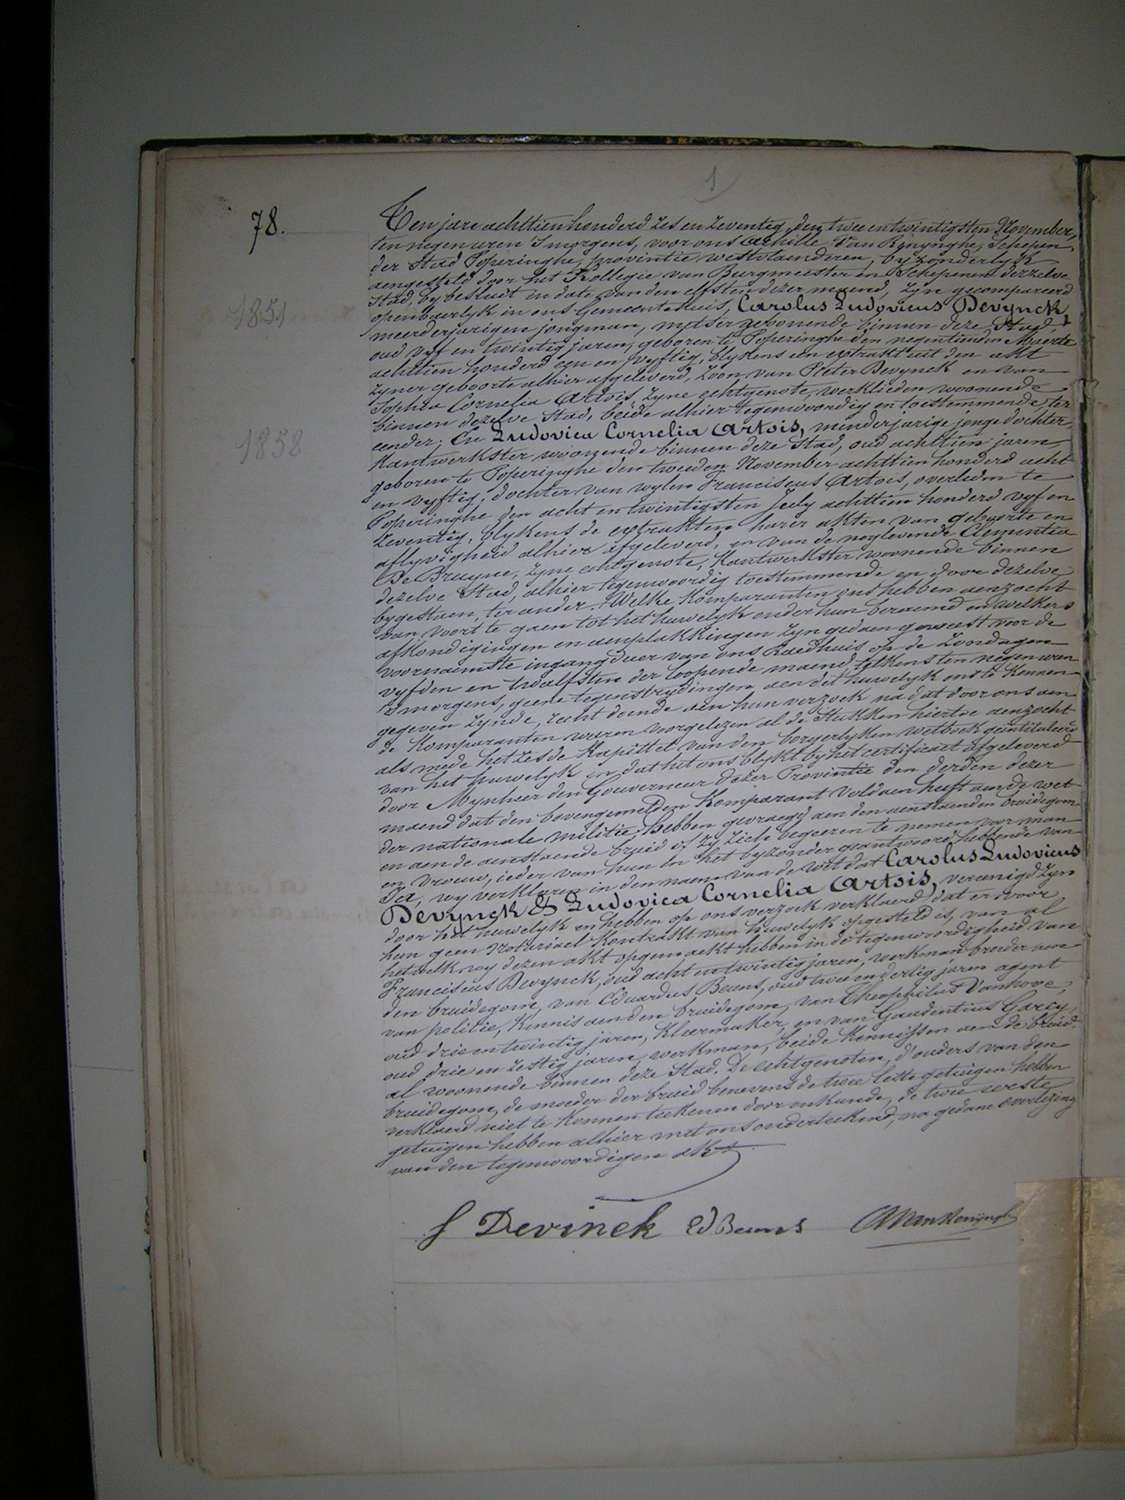 1
78.
Ten jare achttien honderd zes en zeventig, den twee en twintigsten November,
ten negen uren 's morgens, voor ons Achille Van Renynghe, Schepen
der Stad Poperinghe, provintie westvlaenderen, byzonderlyk
aengesteld door het Kollegie van Burgmeester en Schepenen dezzelve
Stad, by besluit in date van den elfsten dezer maend, zyn gecompareerd
1851
openbaerlyk in ons Gemeentehuis, Carolus Ludovicus Devynck,
meerderjarigen jongman, metser woonende binnen deze Stad,
oud vyf en twintig jaren, geboren te Poperinghe den negentienden
achttien honderd een en vyftig, blykens een extrakt uit den akt
zyner geboorte alhier afgeleverd, zoon van Pieter Devynck en van
Sophia Cornelia Artois, zyne echtgenote, werklieden woonende
binnen dezelve Stad, beide alhier tegenwoordig en toestemmende, ter
1858
eender; En Ludovica Cornelia Artois, minderjarige jonge dochter,
Kantwerkster woonende binnen deze Stad, oud achttien jaren
geboren te Poperinghe den tweeden November achttien honderd acht
en vyftig, dochter van wylen Franciscus Artois, overleden te
Poperinghe den acht en twintigsten July achttien honderd vyf en
zeventig, blykens de extrakten harer akten van geboorte en
aflyvigheid alhier afgeleverd, en van de nog levende Clementia
De Bruyne, zyne echtgenote, Kantwerkster woonende binnen
dezelve Stad, alhier tegenwoordig toestemmende en door dezelve
bygestaen, ter ander. Welke Komparanten ons hebben aenzocht
van voort te gaen tot het huwelyk onder hun beraemd en welkers
afkondigingen en aenplakkingen zyn gedaen geweest voor de
voornaemste ingangdeur van ons Raedhuis op de Zondagen
vyfden en twaelfsten der loopende maend, telkens ten negen uren
's morgens, geene tegenstrydingen aen dit huwelyk ons te Kennen
gegeven zynde, recht doende aen hun verzoek na dat door ons aen
de Komparanten waren voorgelezen al de Stukken hiertoe aenzocht
als mede het zesde Kapittel van den borgerlyken wetboek geintituleerd
van het huwelyk en dat het ons blykt by het certificaet afgeleverd
door Mynheer den Gouverneur dezer Provintie den derden dezer
maend dat den bovengemelden Komparant voldaen heeft aen de wet
der nationale militie; Hebben gevraegd aen den aenstaenden bruidegom
en aen de aenstaende bruid of zy zich begeeren te nemen voor man
en vrouw, ieder van hun in het byzonder geantwoord hebbende van
Ja, wy verklaren in den naem van de wet dat Carolus Ludovicus
Devynck & Ludovica Cornelia Artois, vereenigd zyn
door het huwelyk en hebben op ons verzoek verklaerd dat er voor
hun geen Notarieel Kontrakt van huwelyk opgesteld is, van al
het welk wy dezen akt opgemaekt hebben in de tegenwoordigheid van
Franciscus Devynck, oud acht en twintig jaren, werkman broeder van
den bruidegom, van Eduardus Beuns, oud twee en dertig jaren agent
van politie, Kennis aen den bruidegom, van Theophilus Vanhove,
oud drie en twintig jaren, Kleermaker, en van Gaudentius Garcy,
oud drie en zestig jaren, werkman, beide Kennissen aen de bruid
al woonende binnen deze Stad. De echtgenoten, d'ouders van den
bruidegom, de moeder der bruid benevens de twee leste getuigen hebben
verklaerd niet te Konnen teekenen door onkunde, de twee eerste
getuigen hebben alhier met ons onderteekend, na gedane voorlezing
van den tegenwoordigen akt
f Devinck Ed Beuns A Van Renynghe